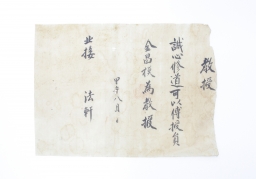 教授
誠心修道可以傳授員
金昌模為教授
甲午八月 日
北接 法軒